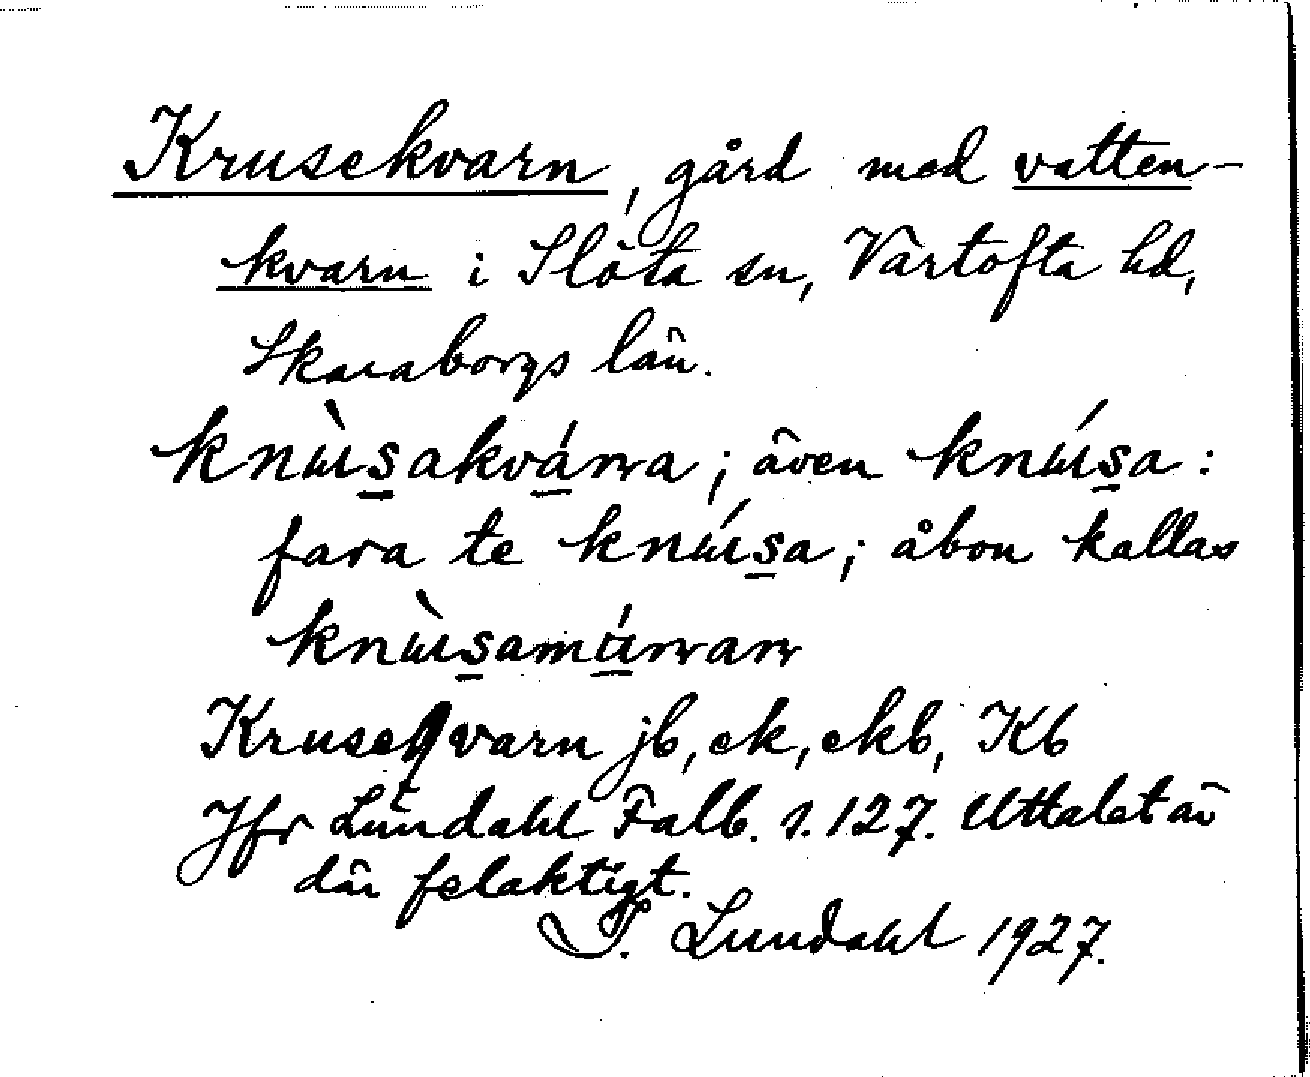 Krusekvarn, gård med vatten-
kvarn i Slöta sn, Vartofta hd,
Skaraborgs län.
knɯ̀sakvárra; även knɯ́sa:
fara te knɯ́sa; åbon kallas
knɯ̀samɯ́rrarr
Kruseqvarn jb, ek, ekb, Kb
Jfr Lundahl Falb. s. 127. Uttalet är
där felaktigt.
I. Lundahl 1927.